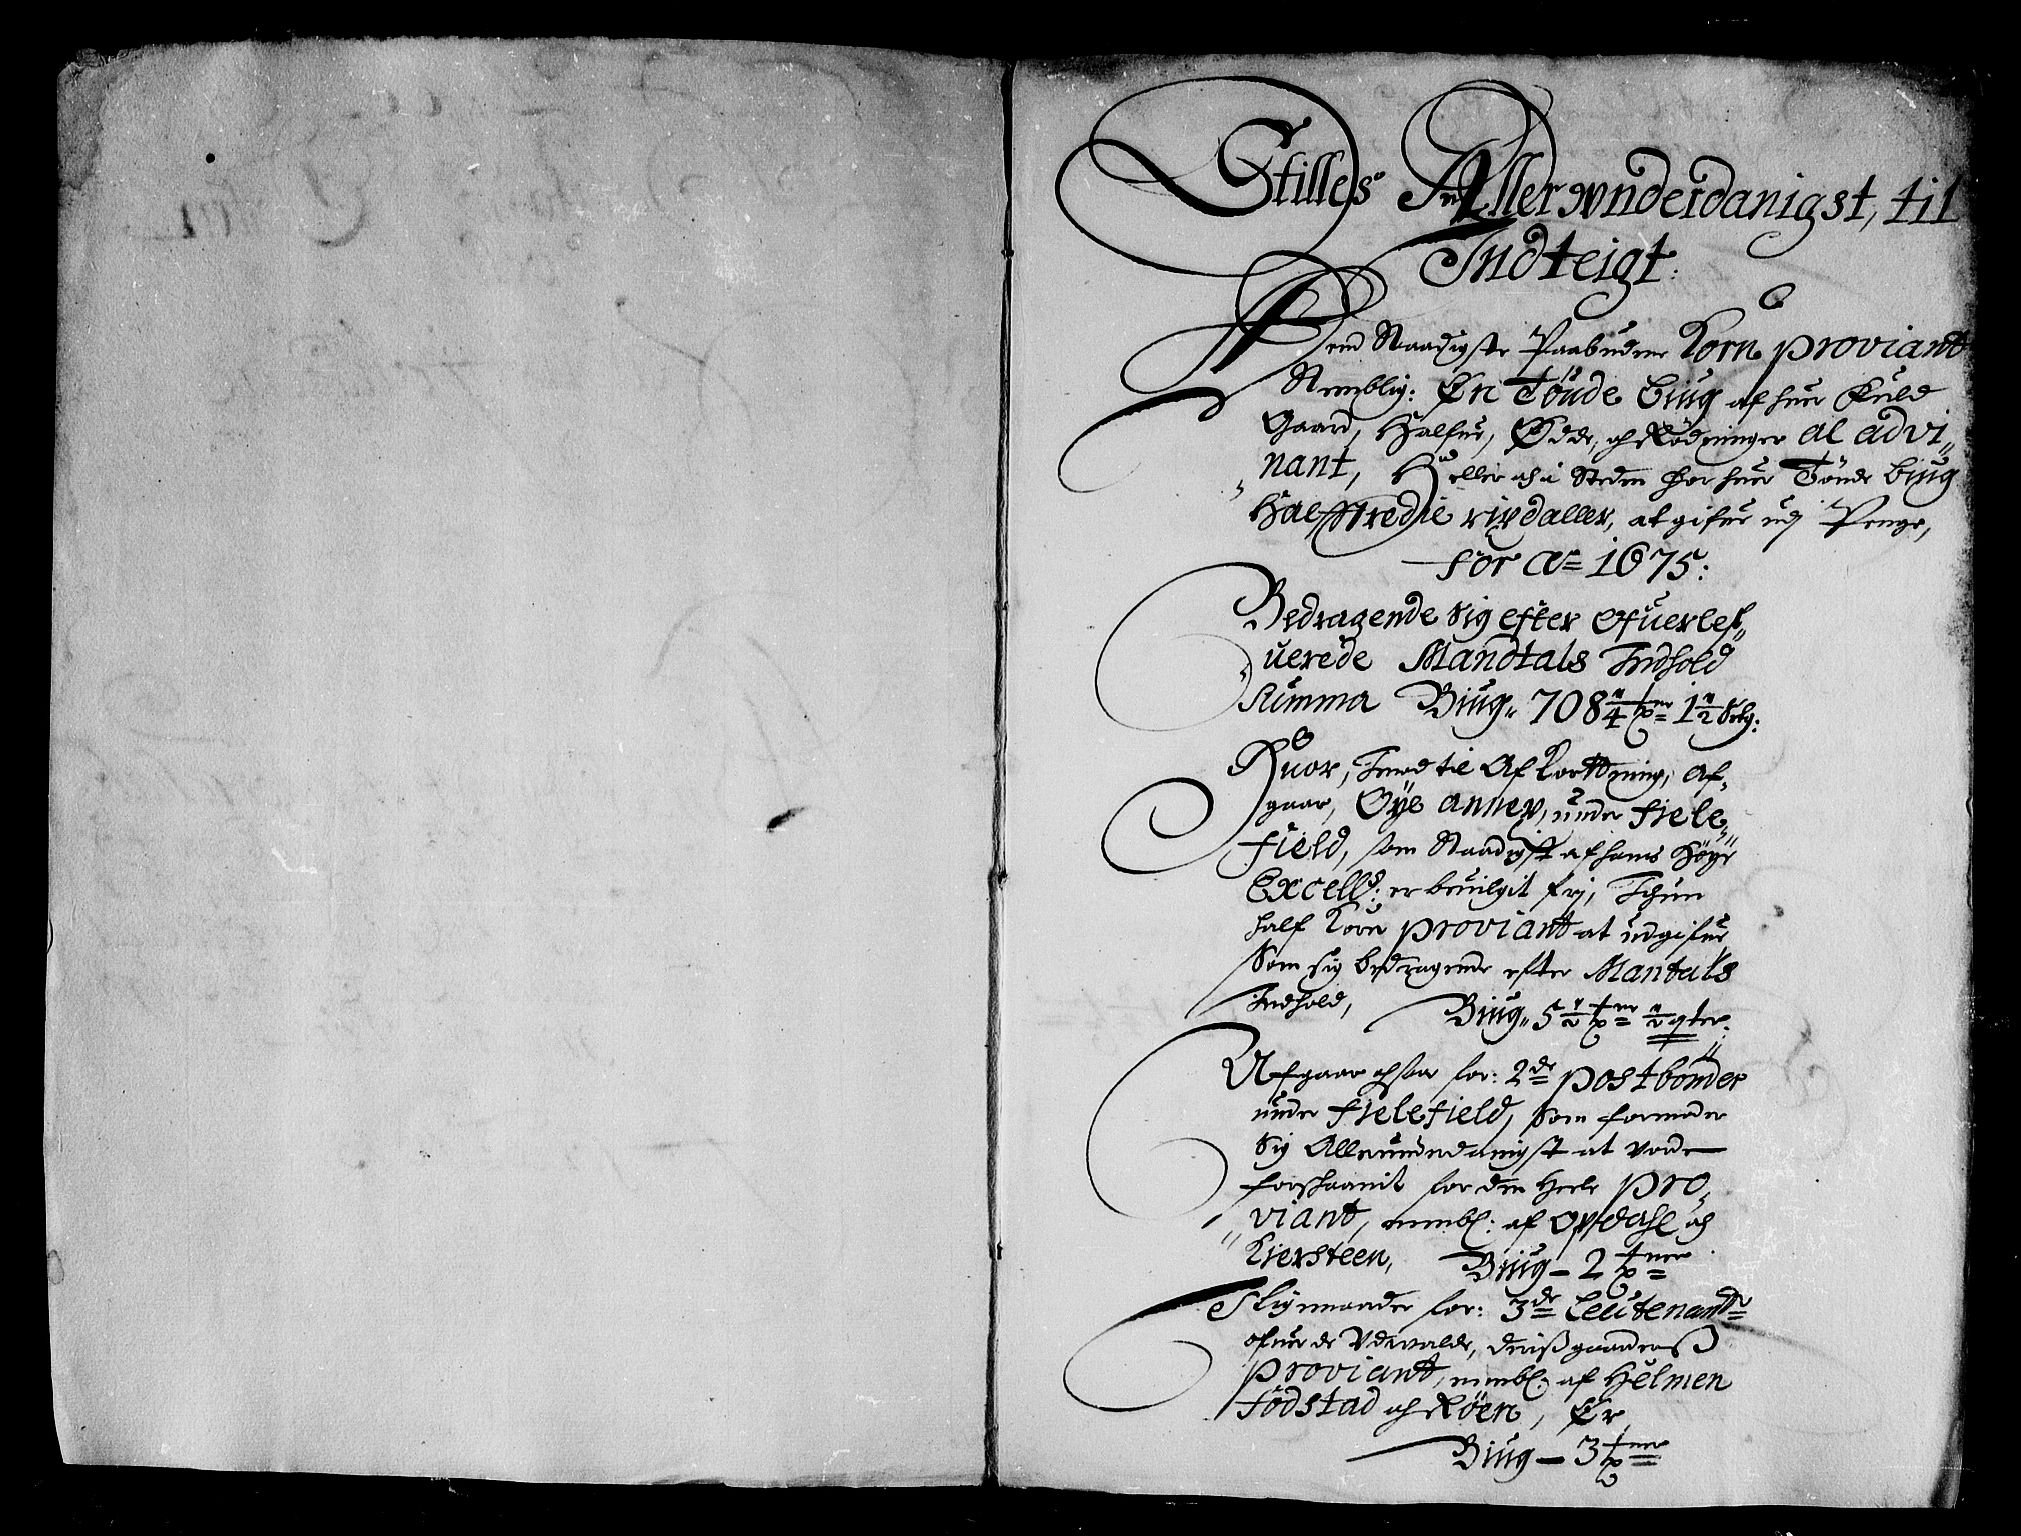 Stilles Allerunderdanigst, til
Indteigt:
Dend Naadigste Paabudene Korn proviant
Nemblig: En Tönde Biug af huer Fuld
Gaard, Halfue, Ødde, och Rödninger al advi„
„nant, Heller och i Steden for huer Tönde biug
Halftredie rixdaller, at gifue udj Penge,
for Ao 1675:
Bedragende Sig efter Ofuerlef„
uerede Mandtals Indhold
Summa Biug„ 708 1/4 tner 1 1/2 :
Huor, Imod til Afkortning, Af„
gaar, Øye annex, under Fiele„
Field, som Naadigst af hans Höye
Excelld: er beuilgit frj, Ichun
half Korn proviant at udgifue
Som sig bedragende efter Mantals
Indhold, Biug„ 5 1/2 tner 1/2 qter:
Afgaar ochsaa for: 2de postbönder
under Fielefield, som formoder
Sig Allerunderdanigst at vorde
forskaanit for den Heele pro„
„viant, nembl: af Opdahl och
Kiersteen, Biug — 2 tner
I ligemaader for: 3de Leutenandtr
ofuer de Udevalde, deris gaarders
proviant, nembl: af Helmen
Födstad och Röen, Er
Biug — 3 tner